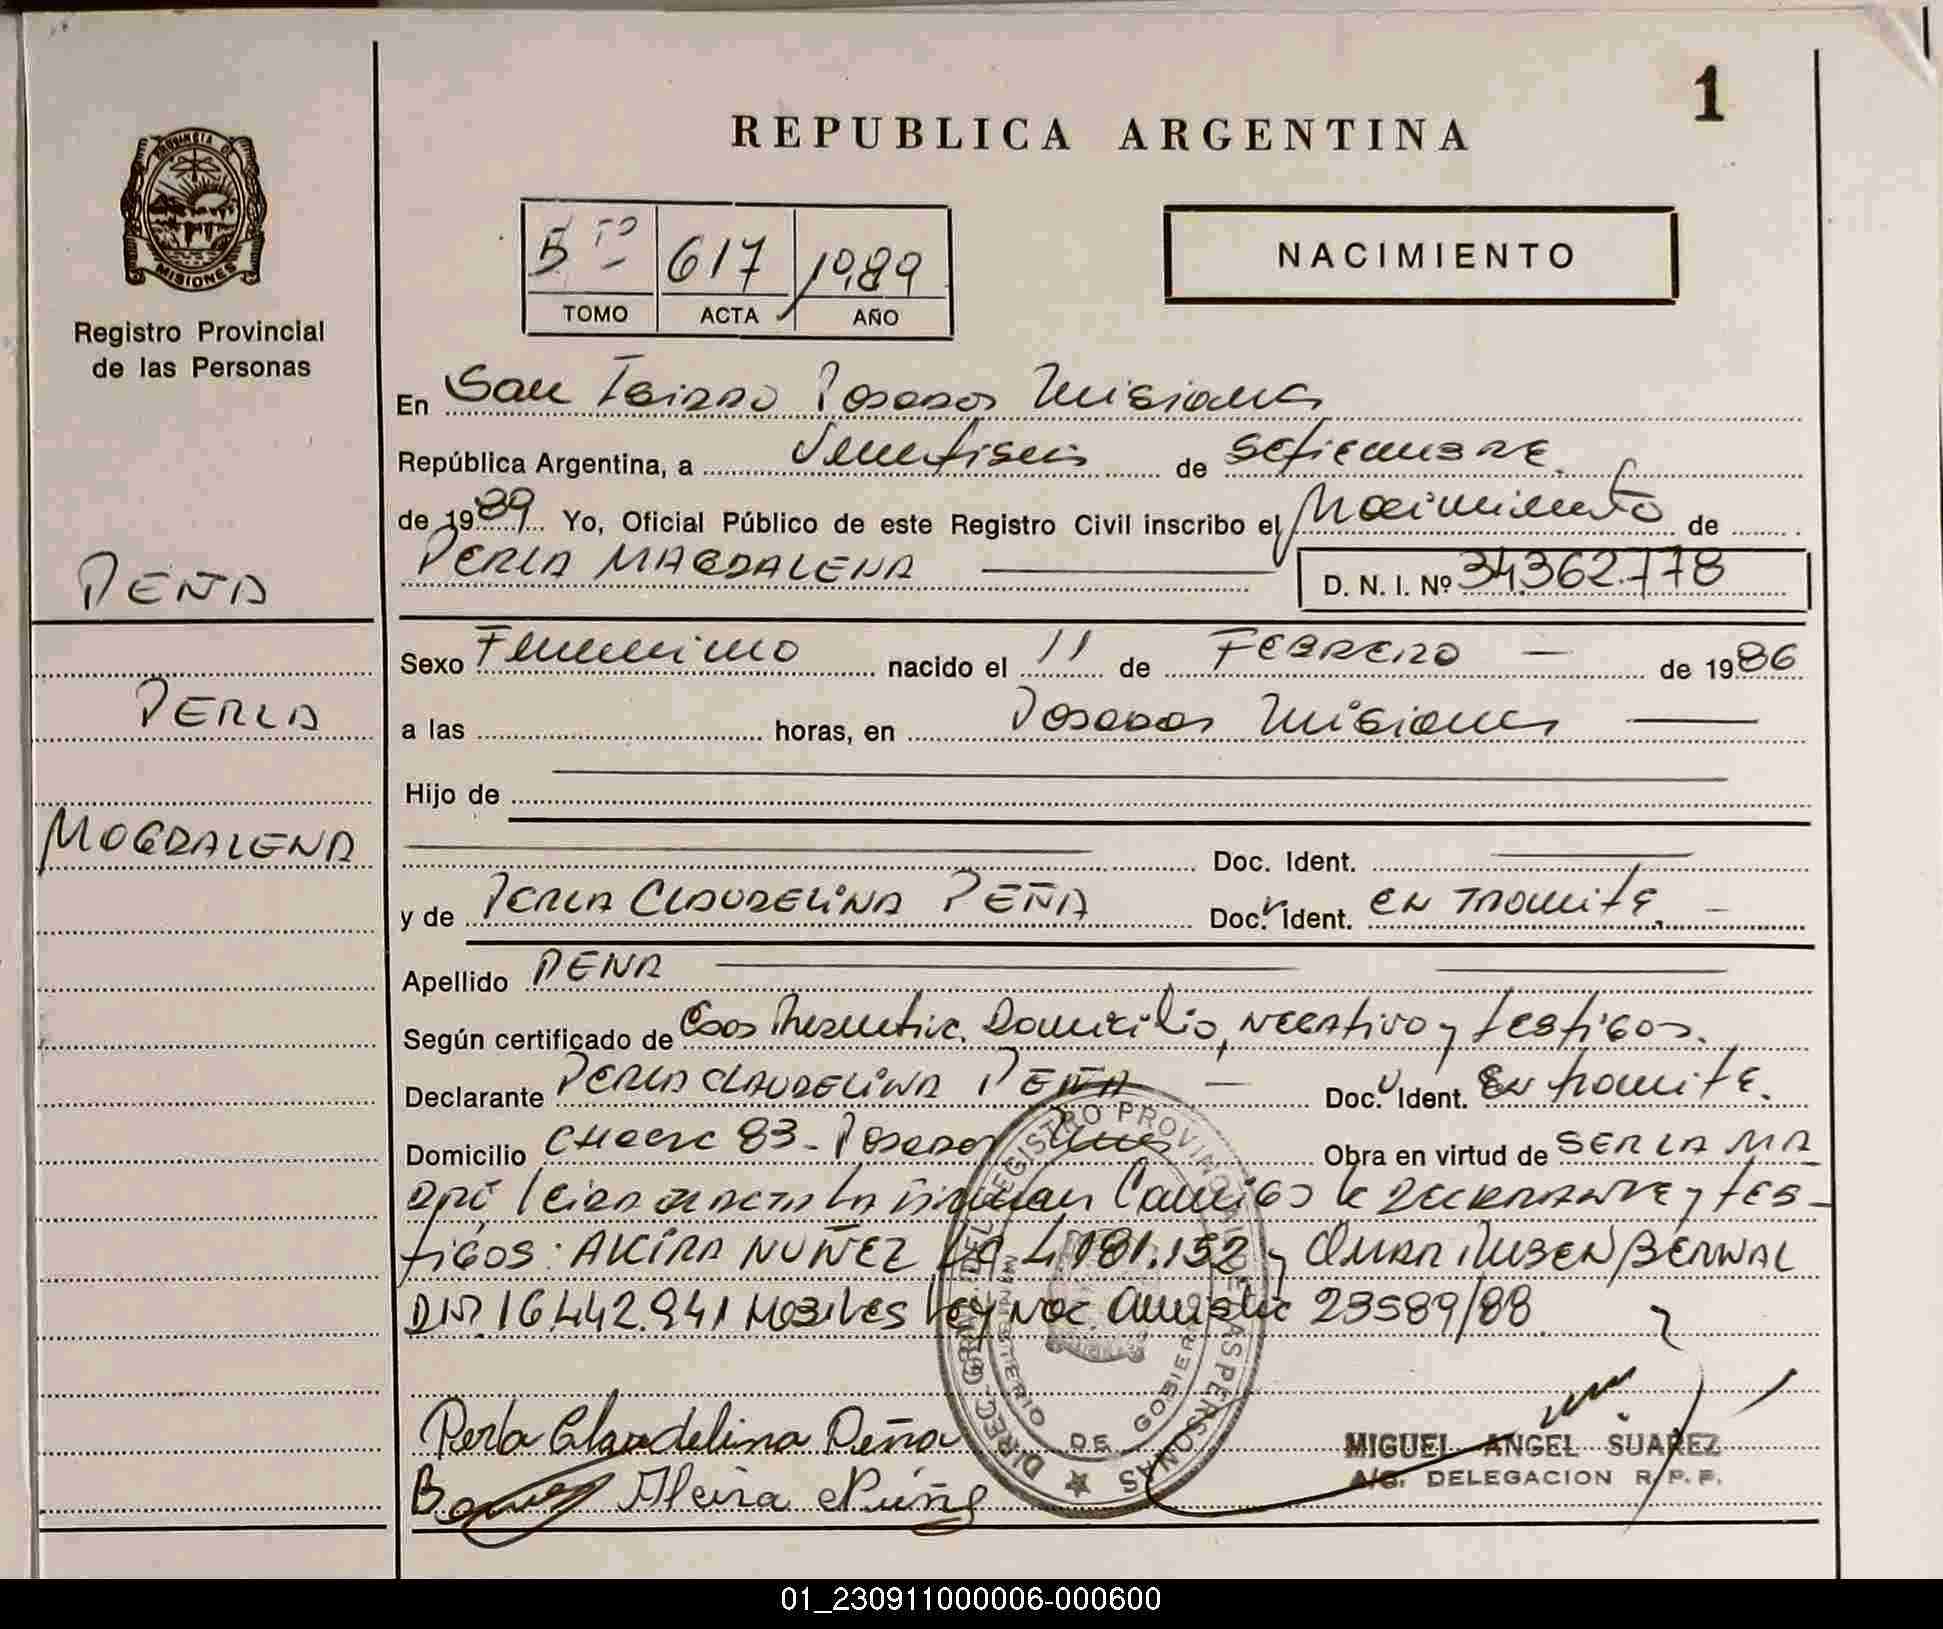 1
REPUBLICA ARGENTINA
PROVINCIA DE
MISIONES
Registro Provincial
de las Personas
5 TO 617 1989
TOMO ACTA AÑO
NACIMIENTO
En San Isidro Posadas Misiones
República Argentina, a Veintiseis de setiembre
de 1989 Yo, Oficial Público de este Registro Civil inscribo el Nacimiento de
PERLA MAGDALENA D. N. I. Nº 34.362.778
PEÑA
PERLA
MAGDALENA
Sexo Femenino nacido el 11 de FEBRERO de 1986
a las horas, en Posadas Misiones
Hijo de
Doc. Ident.
y de PERLA CLAUDELINA PEÑA Doc. Ident. EN TRAMITE.
Apellido PEÑA
Según certificado de Domicilio, NEGATIVO y testigos.
Declarante PERLA CLAUDELINA PEÑA Doc. Ident. En tramite.
Domicilio CHACRA 83 - Posadas Mnes Obra en virtud de SER LA MA
DRE leida el acta la firman Conmigo la DECLARANTE y TES-
tigos: ALCIRA NUÑEZ, LC 4.181.152 y OMAR RUBEN BERNAL
DNI. 16.442.941 Ley Nac. Amnistia 23589/88
Perla Claudelina Peña
Alcira Núñez
DIREC. GRAL. DEL REGISTRO PROVINCIAL DE LAS PERSONAS
MINISTERIO DE GOBIERNO
MIGUEL ANGEL SUAREZ
A/C. DELEGACION R. P. P.
01_230911000006-000600